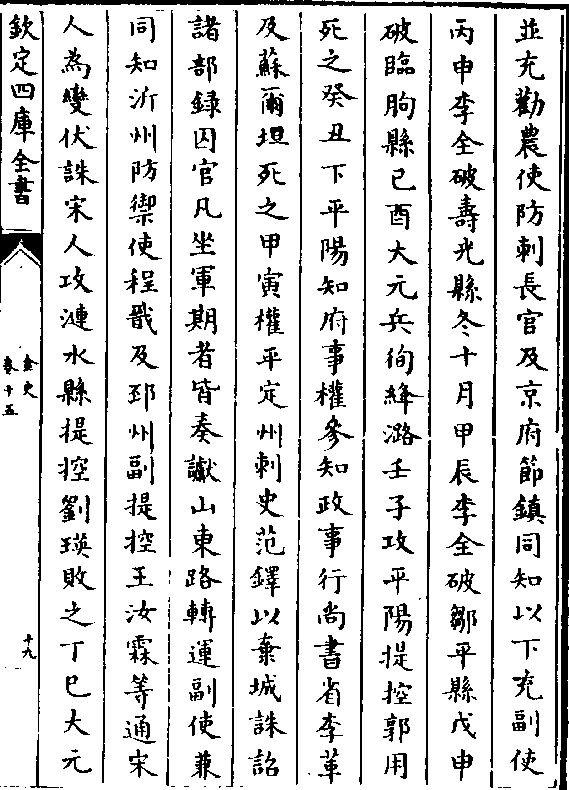 並充勸農使防刺長官及京府節鎮同知以下充副使
丙申李全破壽光縣冬十月甲辰李全破鄒平縣戊申
破臨朐縣已酉大元兵徇絳潞壬子攻平陽提控郭用
死之癸丑下平陽知府事權參知政事行尚書省李革
及蘇爾坦死之甲寅權平定州刺史范鐸以棄城誅詔
諸部録囚官凡坐軍期者皆奏讞山東路轉運副使兼
同知沂州防禦使程戩及邳州副提控王汝霖等通宋
人為變伏誅宋人攻漣水縣提控劉瑛敗之丁巳大元
欽定四庫全書
金史
卷十五
十九